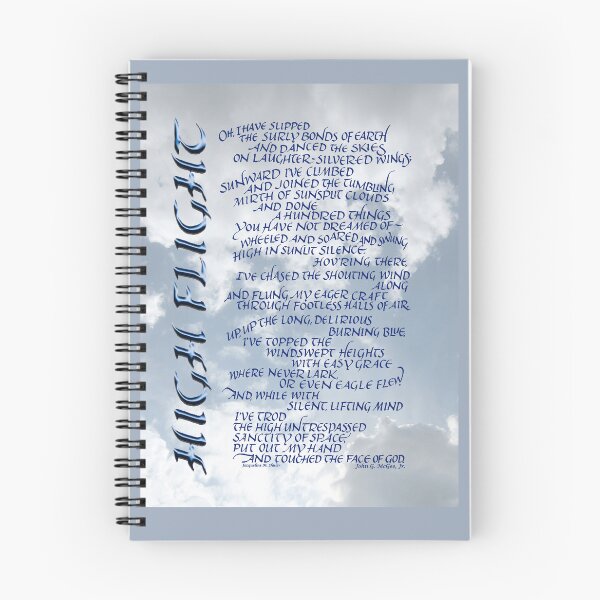 HIGH FLIGHT
OH, I HAVE SLIPPED
THE SURLY BONDS OF EARTH
AND DANCED THE SKIES
ON LAUGHTER-SILVERED WINGS;
SUNWARD I'VE CLIMBED
AND JOINED THE TUMBLING
MIRTH OF SUNSPLIT CLOUDS
AND DONE
A HUNDRED THINGS
YOU HAVE NOT DREAMED OF-
WHEELED AND SOARED AND SWUNG
HIGH IN SUNLIT SILENCE.
HOV'RING THERE
I'VE CHASED THE SHOUTING WIND
ALONG
AND FLUNG MY EAGER CRAFT
THROUGH FOOTLESS HALLS OF AIR.
UP, UP THE LONG, DELIRIOUS
BURNING BLUE,
I'VE TOPPED THE
WINDSWEPT HEIGHTS
WITH EASY GRACE
WHERE NEVER LARK,
OR EVEN EAGLE FLEW;
AND WHILE WITH
SILENT, LIFTING MIND
I'VE TROD
THE HIGH UNTRESPASSED
SANCTITY OF SPACE,
PUT OUT MY HAND
AND TOUCHED THE FACE OF GOD.
John G. McGee, Jr.